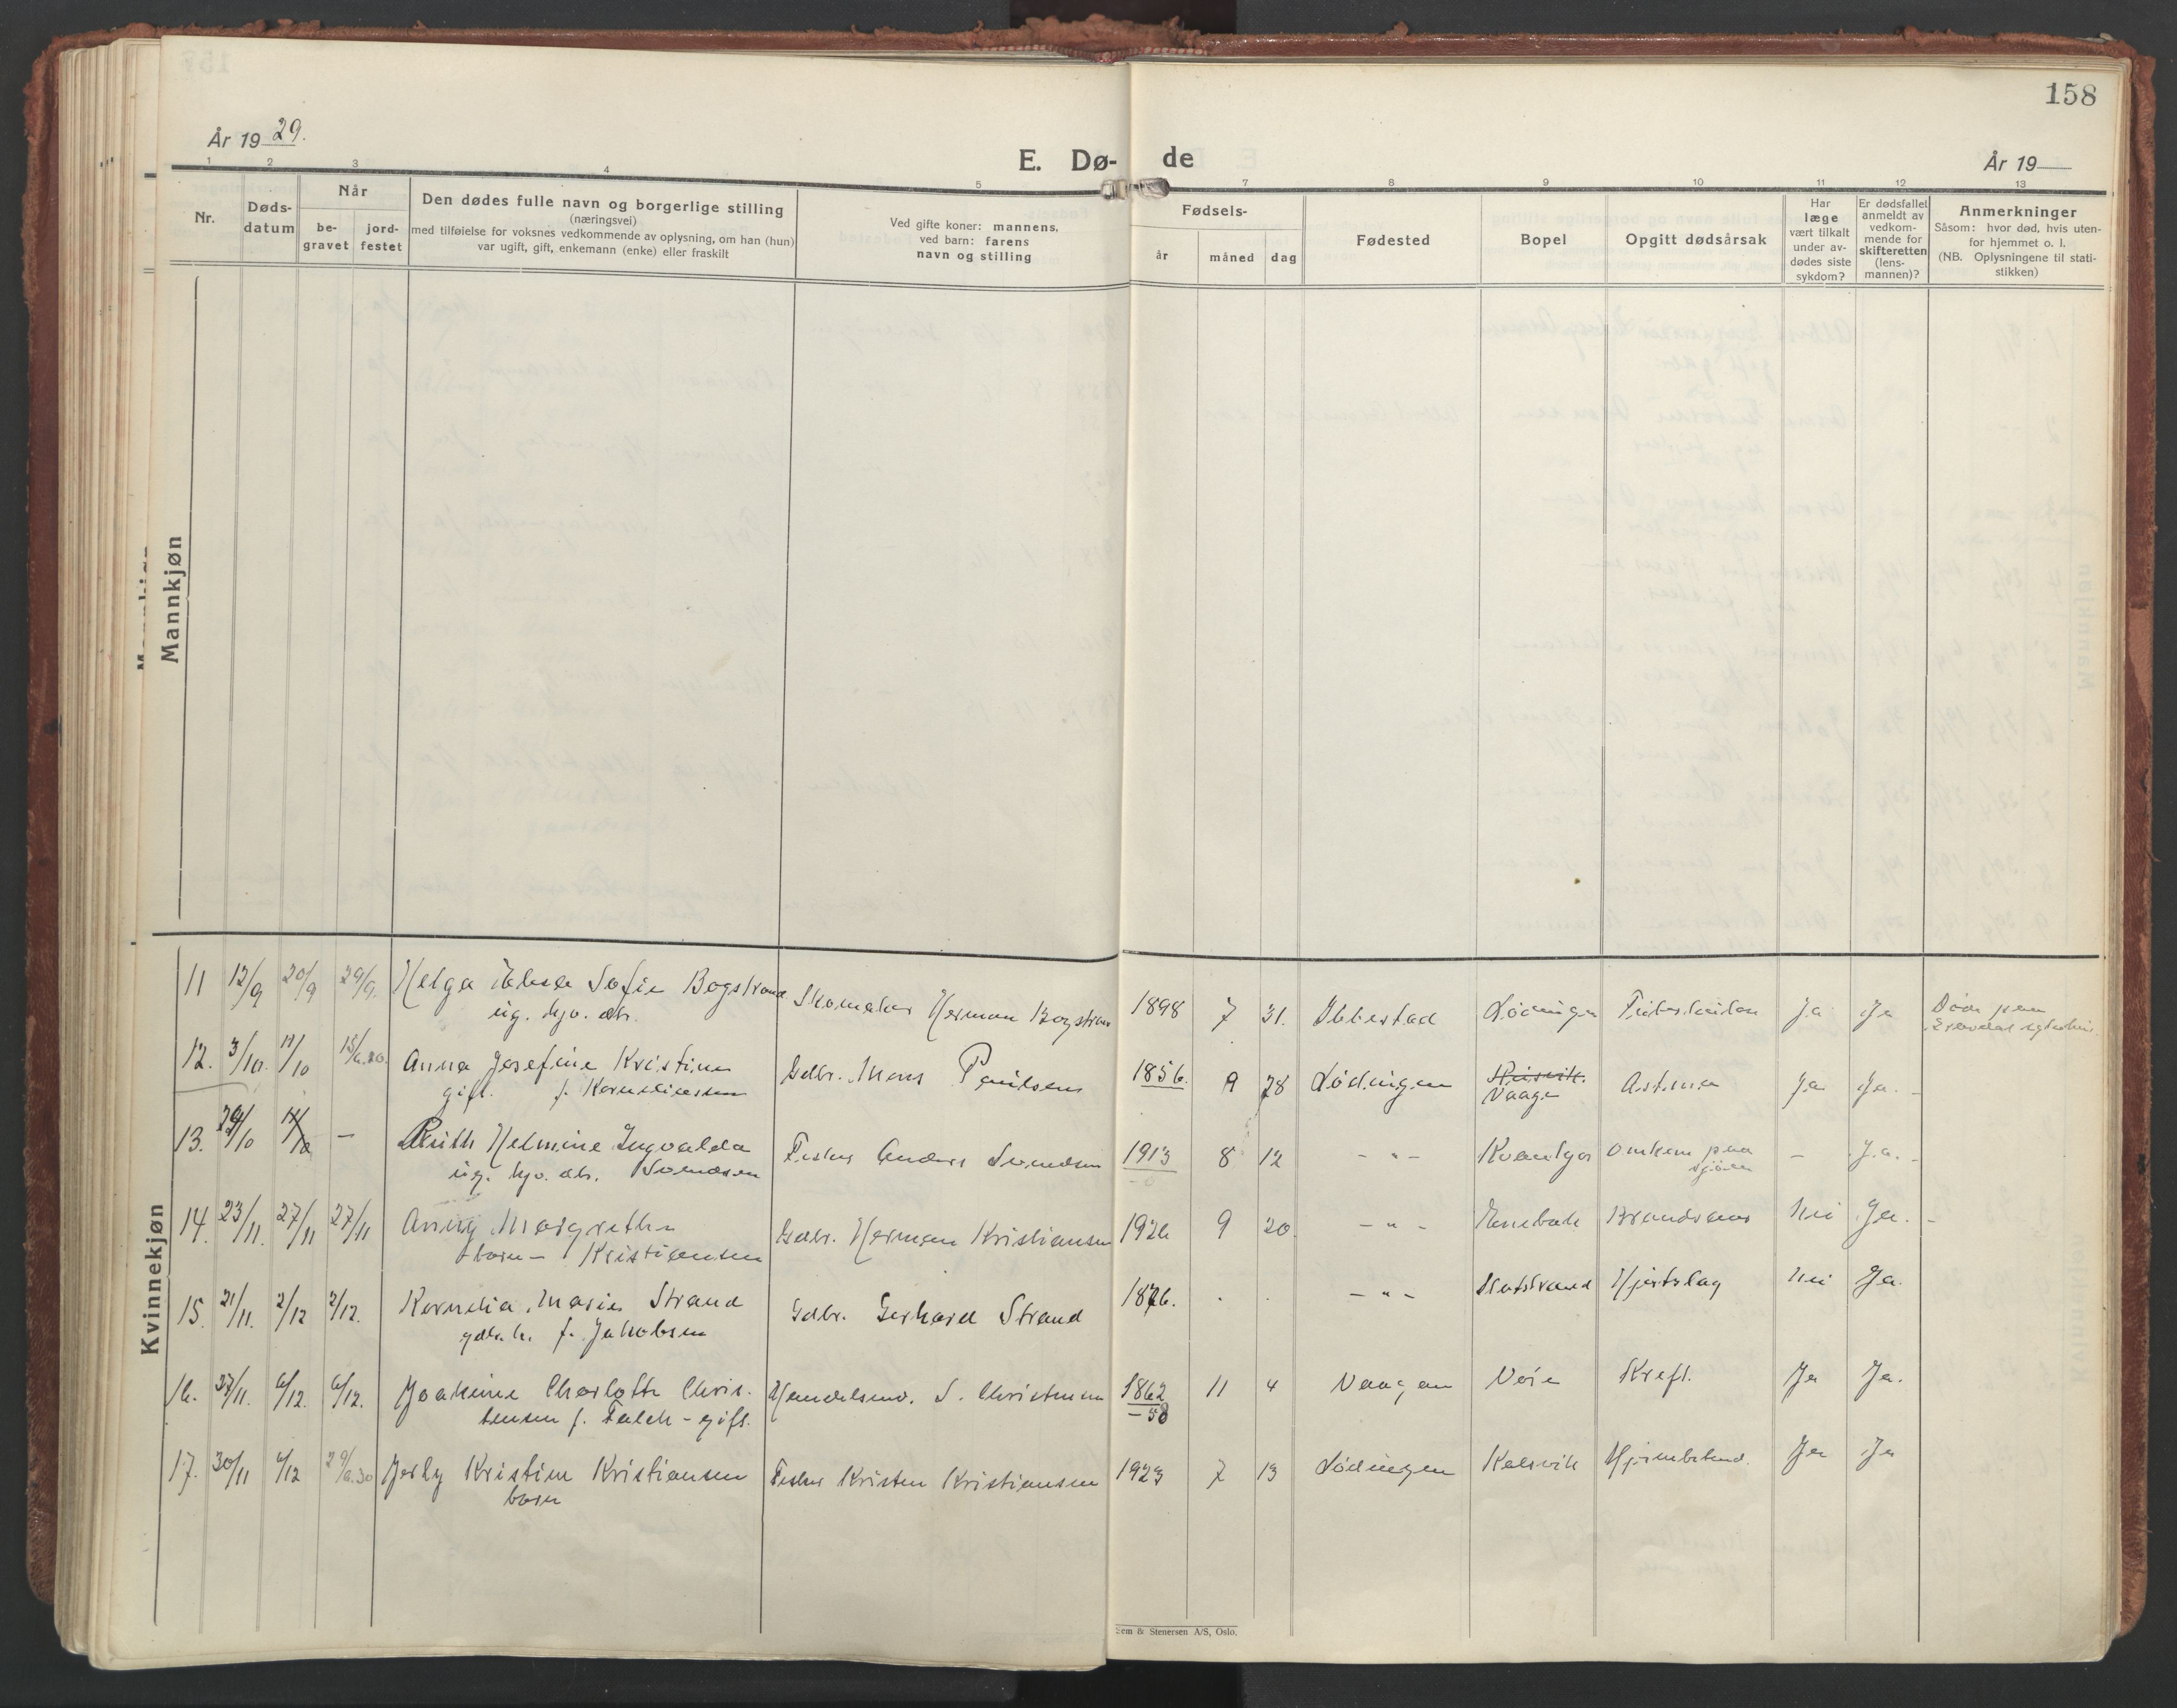 158
År 1929.
E. Dø- de
År 19
1 2 3 4 5 7 8 9 10 11 12 13
Nr.
Døds-
datum
Når
be-
gravet
jord-
festet
Den dødes fulle navn og borgerlige stilling
(næringsvei)
med tilføielse for voksnes vedkommende av oplysning, om han (hun)
var ugift, gift, enkemann (enke) eller fraskilt
Ved gifte koner: mannens,
ved barn: farens
navn og stilling
Fødsels-
år måned dag
Fødested
Bopel
Opgitt dødsårsak
Har
læge
vært tilkalt
under av-
dødes siste
sykdom?
Er dødsfallet
anmeldt av
vedkom-
mende for
skifteretten
(lens-
mannen)?
Anmerkninger
Såsom: hvor død, hvis uten-
for hjemmet o. l.
(NB. Oplysningene til stati-
stikken)
Mannkjøn
Kvinnekjøn
11 12/9 20/9 29/9. Helga Sofie Bogstrand Skomaker Herman Bogstrand 1898 7 31. Ibbestad Lødingen Ja Ja Død paa
ug. hjv. dtr.
12. 3/10. 11/10 Anna Josefine Kristine Gdbr. Mons Paulsen 1856. 9 28 Lødingen Astma Ja Ja. -
gift. f. Korneliussen Vaage
13. 29/10 - Ruth Helmine Ingvalda Fisker Anders Svendsen 1913 8 12 - " - omkom paa - Ja. -
ug. hjv. dtr. Svendsen sjøen
14. 23/11. 27/11 27/11 Anny Margrethe Gdbr. Herman Kristiansen 1926 9 20. - " - Brandsaar Nei Ja. -
- barn - Kristiansen
15. 21/11. 2/12 2/12. Kornelia Marie Strand Gdbr. Gerhard Strand 1876. . . - " - Hjerteslag Nei Ja.
gdbr. k. f. Jakobsen
16. 27/11. 6/12. 6/12. Joakime Charlotte Chris- Handelsmd. S. Christensen 1862 11 4 Vaagan Kreft. Ja Ja.
tensen f. Falch - gift. - 58
17. 30/11 6/12 29/6.30 Jerly Kristine Kristiansen Fisker Kristen Kristiansen 1923 7 13 Lødingen Kalsvik Hjernebetend. Ja Ja
barn
Sem & Stenersen A/S, Oslo.